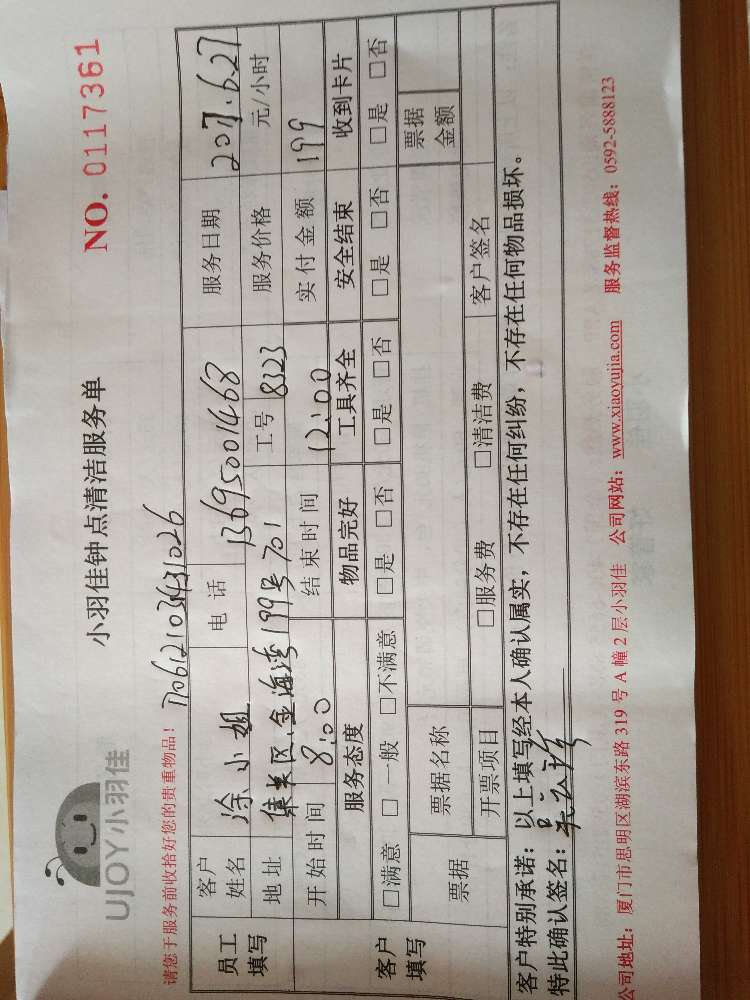 UJOY小羽佳
小羽佳钟点清洁服务单
NO. 0117361
请您于服务前收拾好您的贵重物品！
员工填写
客户姓名 涂小姐 电话 13695001468 服务日期 2017.6.27
地址 集美区.金海湾199号701 工号 8323 服务价格 元/小时
开始时间 8:00 结束时间 12:00 实付金额 199
客户填写
服务态度 物品完好 工具齐全 安全结束 收到卡片
□满意 □一般 □不满意 □是 □否 □是 □否 □是 □否 □是 □否
票据 票据名称 票据金额
开票项目 □服务费 □清洁费 客户签名
客户特别承诺：以上填写经本人确认属实，不存在任何纠纷，不存在任何物品损坏。
特此确认签名：
公司地址：厦门市思明区湖滨东路 319 号 A 幢 2 层小羽佳 公司网站：www.xiaoyujia.com 服务监督热线：0592-5888123